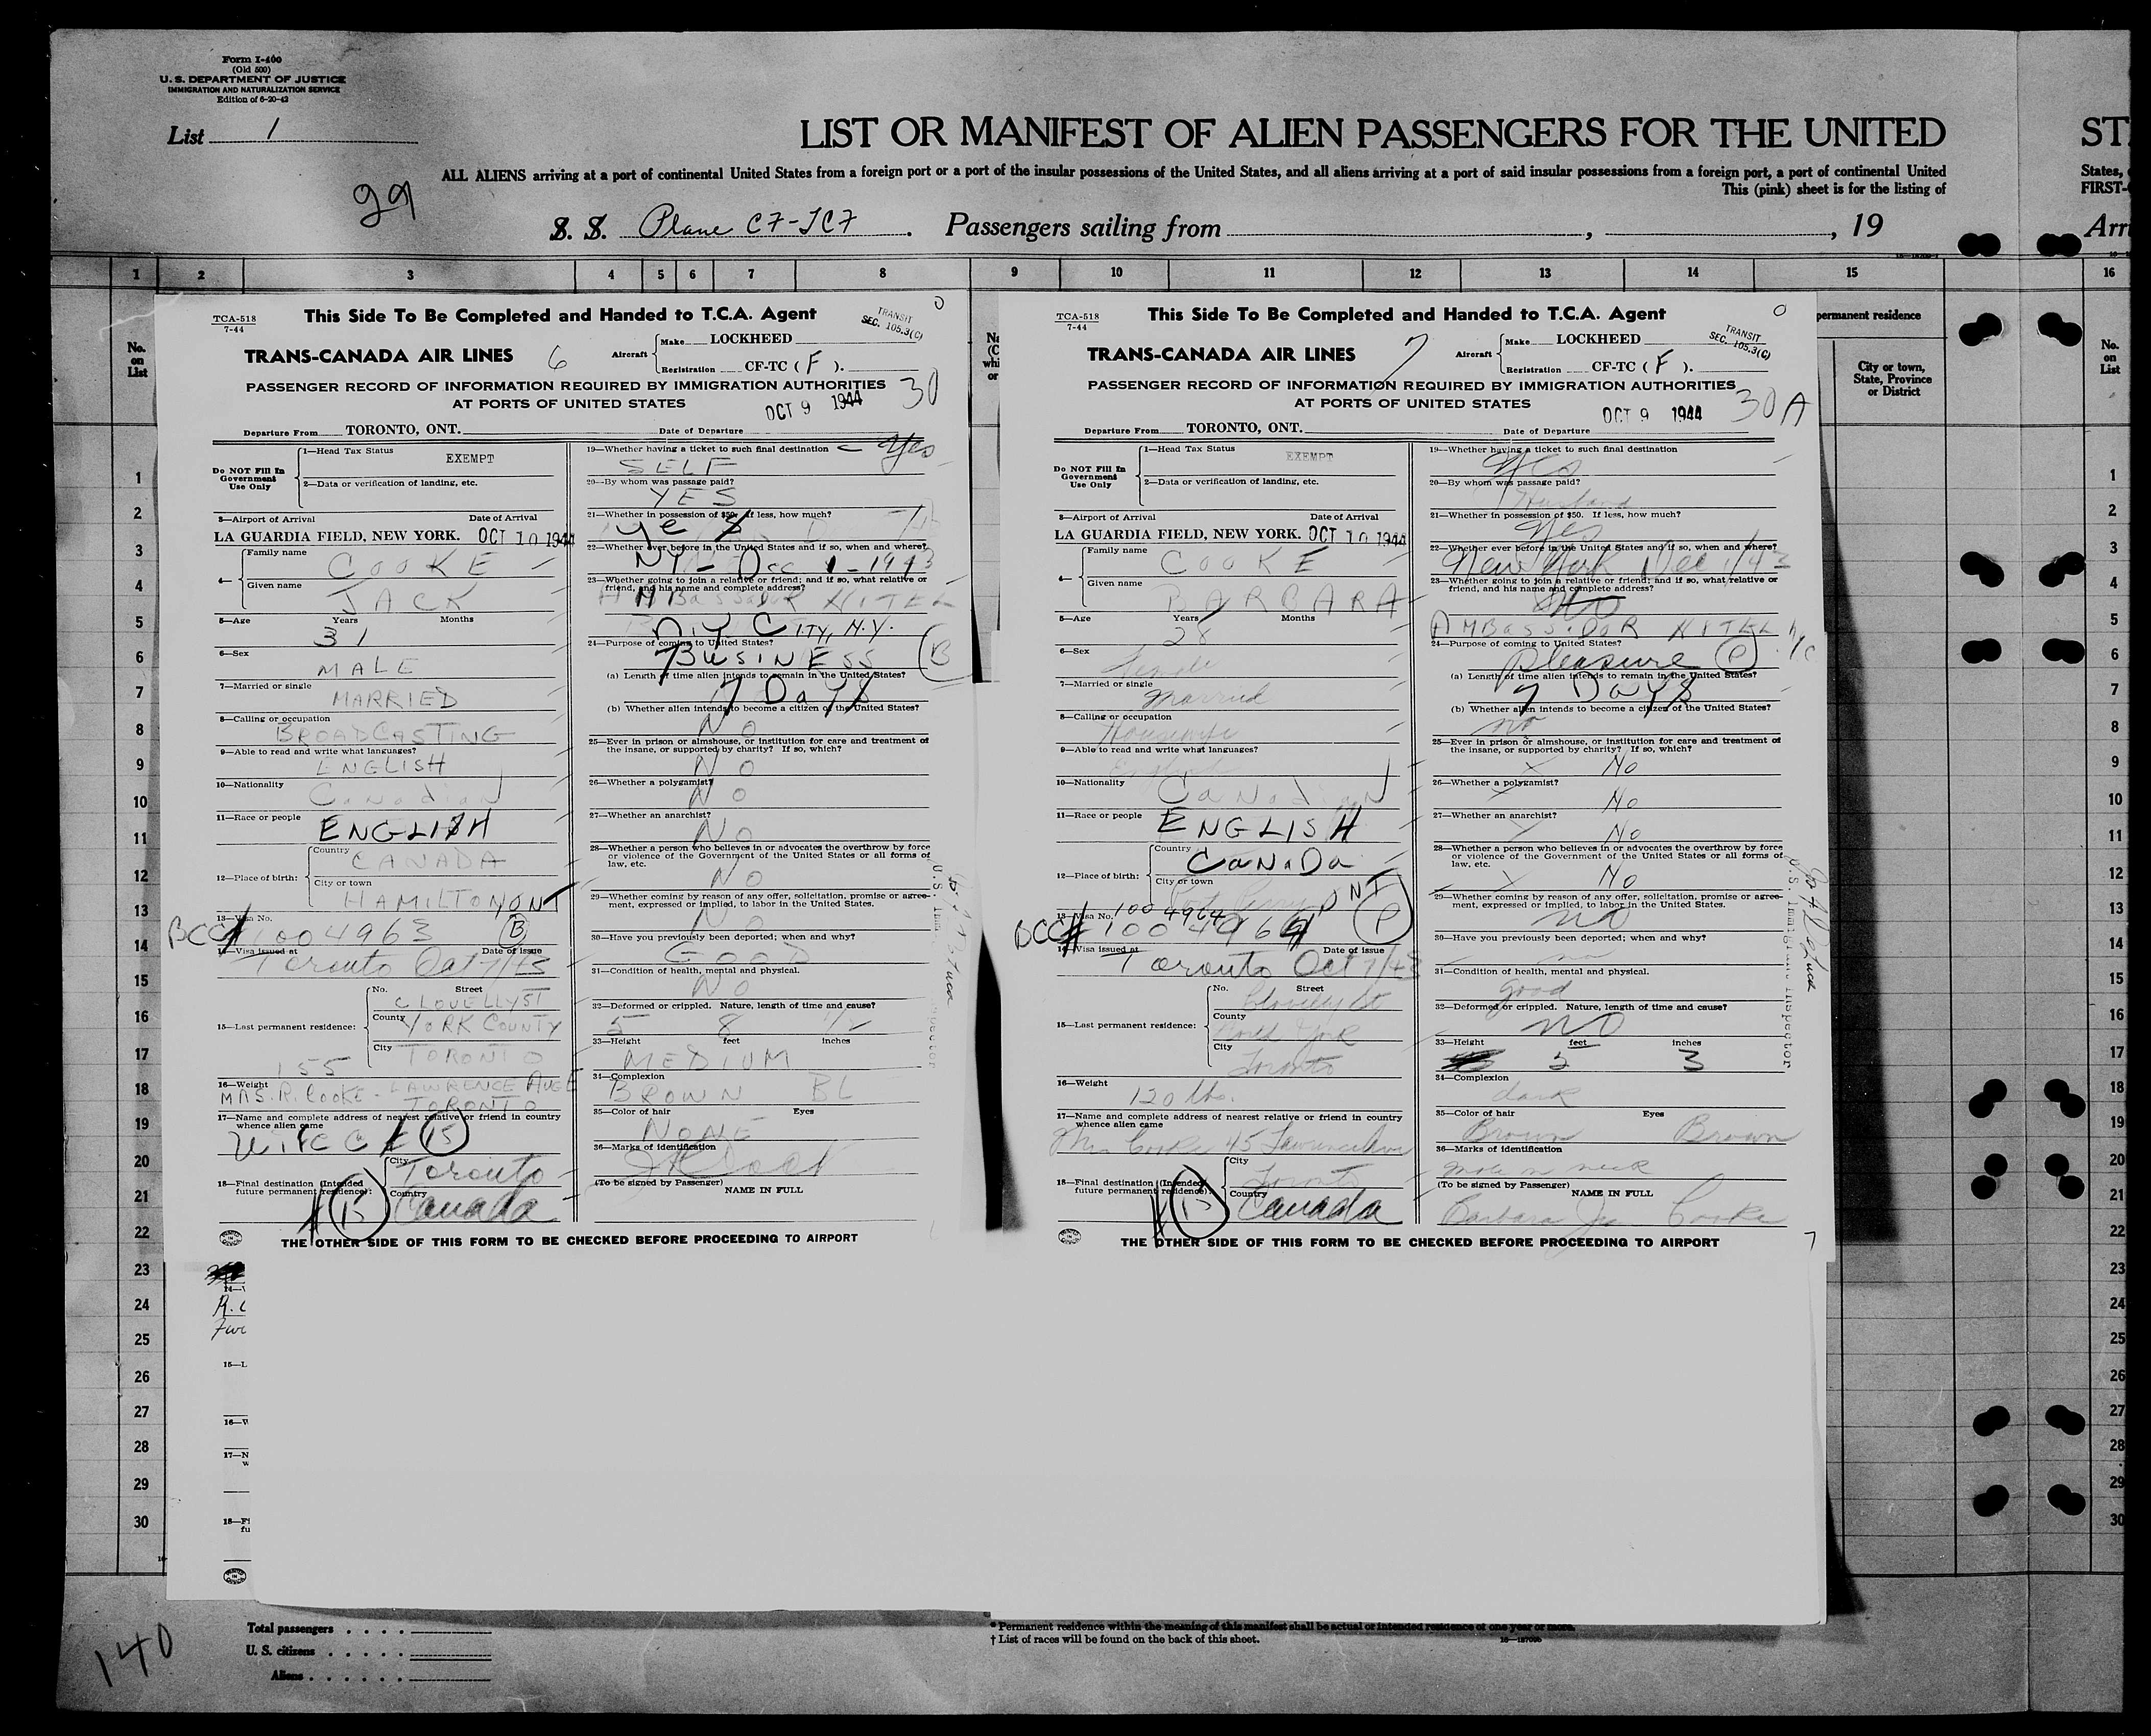 Form I-400
(Old 500)
U. S. DEPARTMENT OF JUSTICE
IMMIGRATION AND NATURALIZATION SERVICE
Edition of 6-20-42
List 1
LIST OR MANIFEST OF ALIEN PASSENGERS FOR THE UNITED
ST
ALL ALIENS arriving at a port of continental United States from a foreign port or a port of the insular possessions of the United States, and all aliens arriving at a port of said insular possessions from a foreign port, a port of continental United
States,
This (pink) sheet is for the listing of
FIRST-
S. S. Plane Passengers sailing from , , 19
Arri
1 2 3 4 5 6 7 8 9 10 11 12 13 14 15 16
No. on List
permanent residence
City or town, State, Province or District
No. on List
TCA-518
7-44
This Side To Be Completed and Handed to T.C.A. Agent
TRANSIT
SEC. 105.3(C)
TRANS-CANADA AIR LINES 6
Aircraft Make LOCKHEED
Registration CF-TC ( F ).
PASSENGER RECORD OF INFORMATION REQUIRED BY IMMIGRATION AUTHORITIES
AT PORTS OF UNITED STATES
OCT 9 1944 30
Departure From TORONTO, ONT. Date of Departure
Do NOT Fill In Government Use Only
1—Head Tax Status
EXEMPT
2—Data or verification of landing, etc.
3—Airport of Arrival Date of Arrival
LA GUARDIA FIELD, NEW YORK. OCT 10 1944
4— Family name COOKE
Given name JACK
5—Age Years Months
31
6—Sex
MALE
7—Married or single
MARRIED
8—Calling or occupation
BROADCASTING
9—Able to read and write what languages?
ENGLISH
10—Nationality
Canadian
11—Race or people
ENGLISH
12—Place of birth: Country
CANADA
City or town
HAMILTON ONT
13—Visa No.
BCC# 1004963 B
14—Visa issued at Date of issue
Toronto Oct 7/43
15—Last permanent residence: No. Street
CLOVELLY ST
County YORK COUNTY
City TORONTO
155
16—Weight
MRS. R. COOKE - LAWRENCE AVE E
TORONTO
17—Name and complete address of nearest relative or friend in country whence alien came
15
18—Final destination (Intended future permanent residence):
City Toronto
Country Canada
#15
19—Whether having a ticket to such final destination — Yes
SELF
20—By whom was passage paid?
YES
21—Whether in possession of $50. If less, how much?
Yes
22—Whether ever before in the United States and if so, when and where?
NY - Dec 1-1943
23—Whether going to join a relative or friend; and if so, what relative or friend, and his name and complete address?
AMBASSADOR HOTEL
N.Y. CITY, N.Y.
24—Purpose of coming to United States?
BUSINESS B
(a) Length of time alien intends to remain in the United States?
7 Days
(b) Whether alien intends to become a citizen of the United States?
NO
25—Ever in prison or almshouse, or institution for care and treatment of the insane, or supported by charity? If so, which?
NO
26—Whether a polygamist?
NO
27—Whether an anarchist?
NO
28—Whether a person who believes in or advocates the overthrow by force or violence of the Government of the United States or all forms of law, etc.
NO
29—Whether coming by reason of any offer, solicitation, promise or agreement, expressed or implied, to labor in the United States.
NO
30—Have you previously been deported; when and why?
GOOD
31—Condition of health, mental and physical.
NO
32—Deformed or crippled. Nature, length of time and cause?
5 8 1/2
33—Height feet inches
MEDIUM
34—Complexion
BROWN BL
35—Color of hair Eyes
NONE
36—Marks of identification
(To be signed by Passenger) NAME IN FULL
THE OTHER SIDE OF THIS FORM TO BE CHECKED BEFORE PROCEEDING TO AIRPORT
TCA-518
7-44
This Side To Be Completed and Handed to T.C.A. Agent
TRANSIT
SEC. 105.3(C)
TRANS-CANADA AIR LINES 7
Aircraft Make LOCKHEED
Registration CF-TC ( F ).
PASSENGER RECORD OF INFORMATION REQUIRED BY IMMIGRATION AUTHORITIES
AT PORTS OF UNITED STATES
OCT 9 1944 30A
Departure From TORONTO, ONT. Date of Departure
Do NOT Fill In Government Use Only
1—Head Tax Status
EXEMPT
2—Data or verification of landing, etc.
3—Airport of Arrival Date of Arrival
LA GUARDIA FIELD, NEW YORK. OCT 10 1944
4— Family name COOKE
Given name BARBARA
5—Age Years Months
28
6—Sex
female
7—Married or single
Married
8—Calling or occupation
Housewife
9—Able to read and write what languages?
10—Nationality
Canadian
11—Race or people
ENGLISH
12—Place of birth: Country
CANADA
City or town
Port Perry ONT
13—Visa No. 1004964
BCC# 1004964 P
14—Visa issued at Date of issue
Toronto Oct 7/43
15—Last permanent residence: No. Street
Clovelly St
County North York
City Toronto
16—Weight
120 lbs.
17—Name and complete address of nearest relative or friend in country whence alien came
Mrs Cooke 45 Lawrence Ave
18—Final destination (Intended future permanent residence):
City Toronto
Country Canada
#15
19—Whether having a ticket to such final destination
Yes
20—By whom was passage paid?
Husband
21—Whether in possession of $50. If less, how much?
Yes
22—Whether ever before in the United States and if so, when and where?
New York Dec 1/43
23—Whether going to join a relative or friend; and if so, what relative or friend, and his name and complete address?
No
AMBASSADOR HOTEL NYC
24—Purpose of coming to United States?
pleasure P
(a) Length of time alien intends to remain in the United States?
7 Days
(b) Whether alien intends to become a citizen of the United States?
no
25—Ever in prison or almshouse, or institution for care and treatment of the insane, or supported by charity? If so, which?
No
26—Whether a polygamist?
No
27—Whether an anarchist?
No
28—Whether a person who believes in or advocates the overthrow by force or violence of the Government of the United States or all forms of law, etc.
No
29—Whether coming by reason of any offer, solicitation, promise or agreement, expressed or implied, to labor in the United States.
NO
30—Have you previously been deported; when and why?
no
31—Condition of health, mental and physical.
good
32—Deformed or crippled. Nature, length of time and cause?
NO
33—Height feet inches
5 3
34—Complexion
dark
35—Color of hair Eyes
Brown Brown
36—Marks of identification
mole on neck
(To be signed by Passenger) NAME IN FULL
Barbara Cooke
U.S. Immigrant Inspector
THE OTHER SIDE OF THIS FORM TO BE CHECKED BEFORE PROCEEDING TO AIRPORT
7
Total passengers
U. S. citizens
Aliens
* Permanent residence within the meaning of this manifest shall be actual or intended residence of one year or more.
† List of races will be found on the back of this sheet.
140